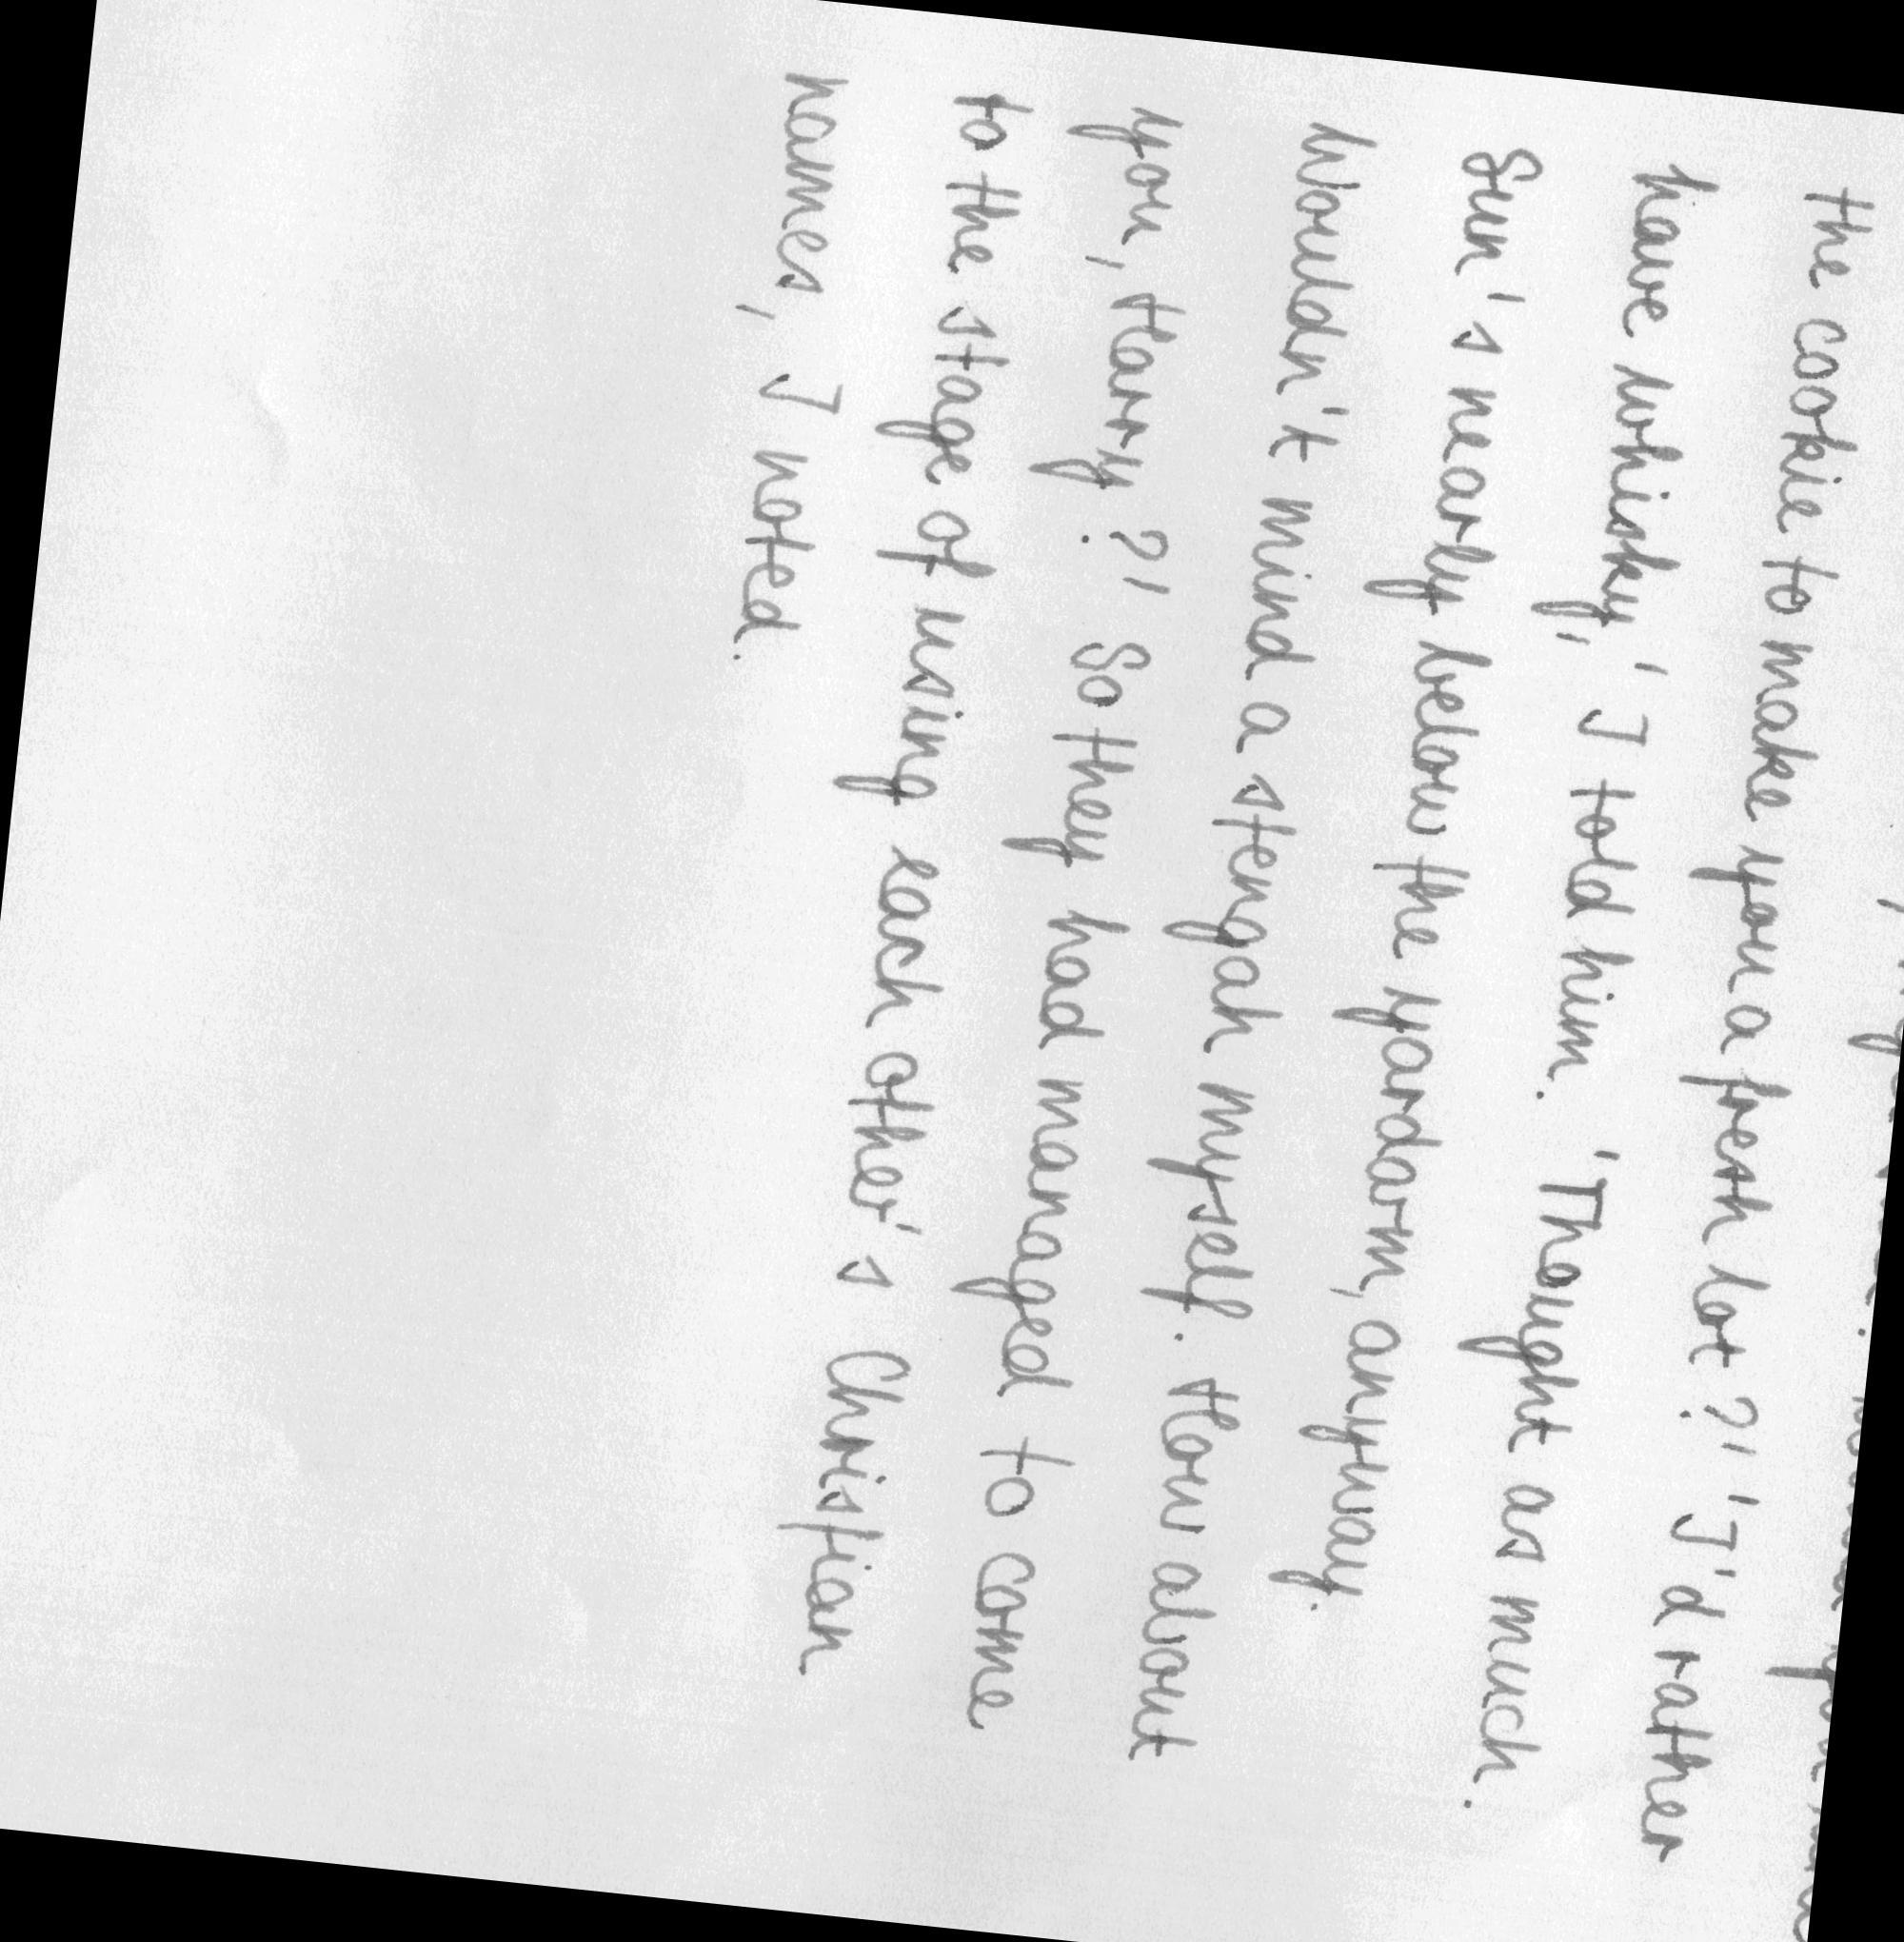 the cookie to make you a fresh lot?' 'I'd rather
have whisky,' I told him. 'Thought as much.
Sun's nearly below the yardarm, anyway.
Wouldn't mind a stengah myself. How about
you, Harry?' So they had managed to come
to the stage of using each other's Christian
names, I noted.